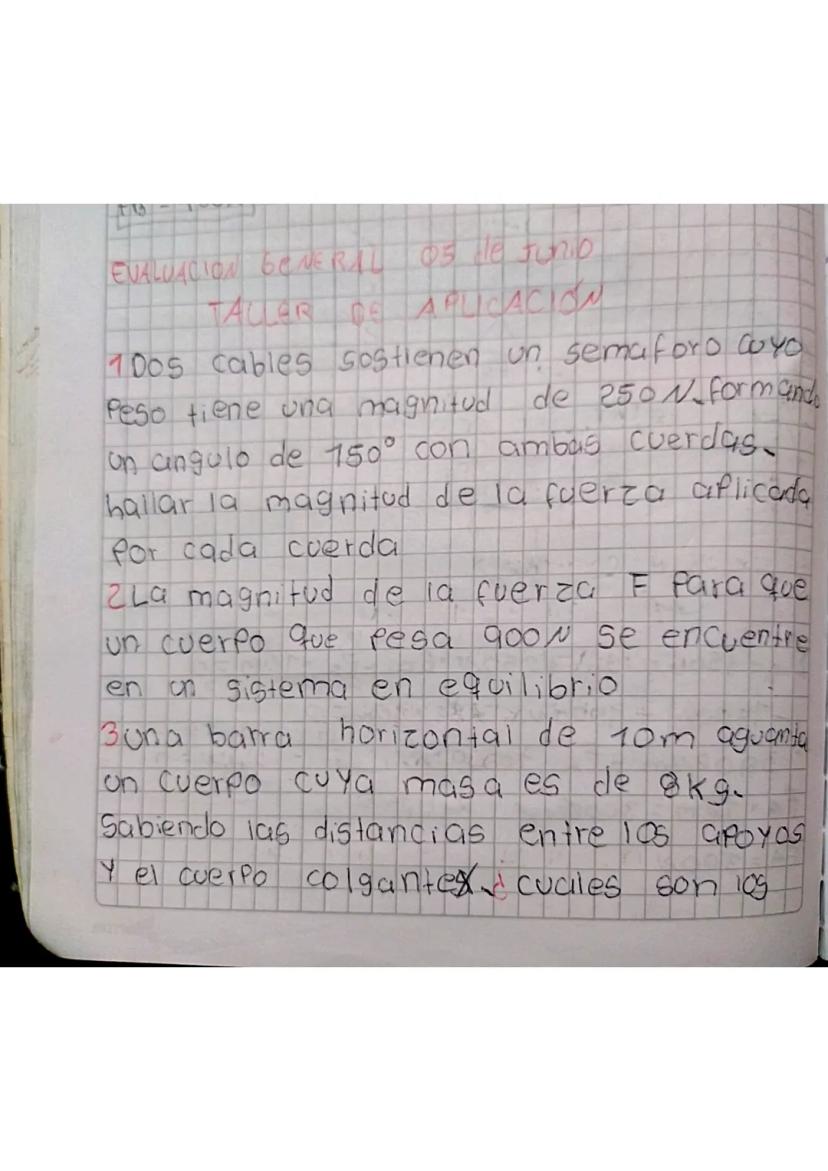 EVALUACION GENERAL 05 de Junio
TALLER DE APLICACIÓN
1 Dos cables sostienen un semaforo cuyo
Peso tiene una magnitud de 250 N. formando
un angulo de 150° con ambas cuerdas.
hallar la magnitud de la fuerza aplicada
Por cada cuerda
2 La magnitud de la fuerza F Para que
un cuerpo que pesa 900N se encuentre
en un sistema en equilibrio
3 una barra horizontal de 10m aguanta
un cuerpo cuya masa es de 8Kg.
Sabiendo las distancias entre los apoyos
y el cuerpo colgante. ¿ cuales son los